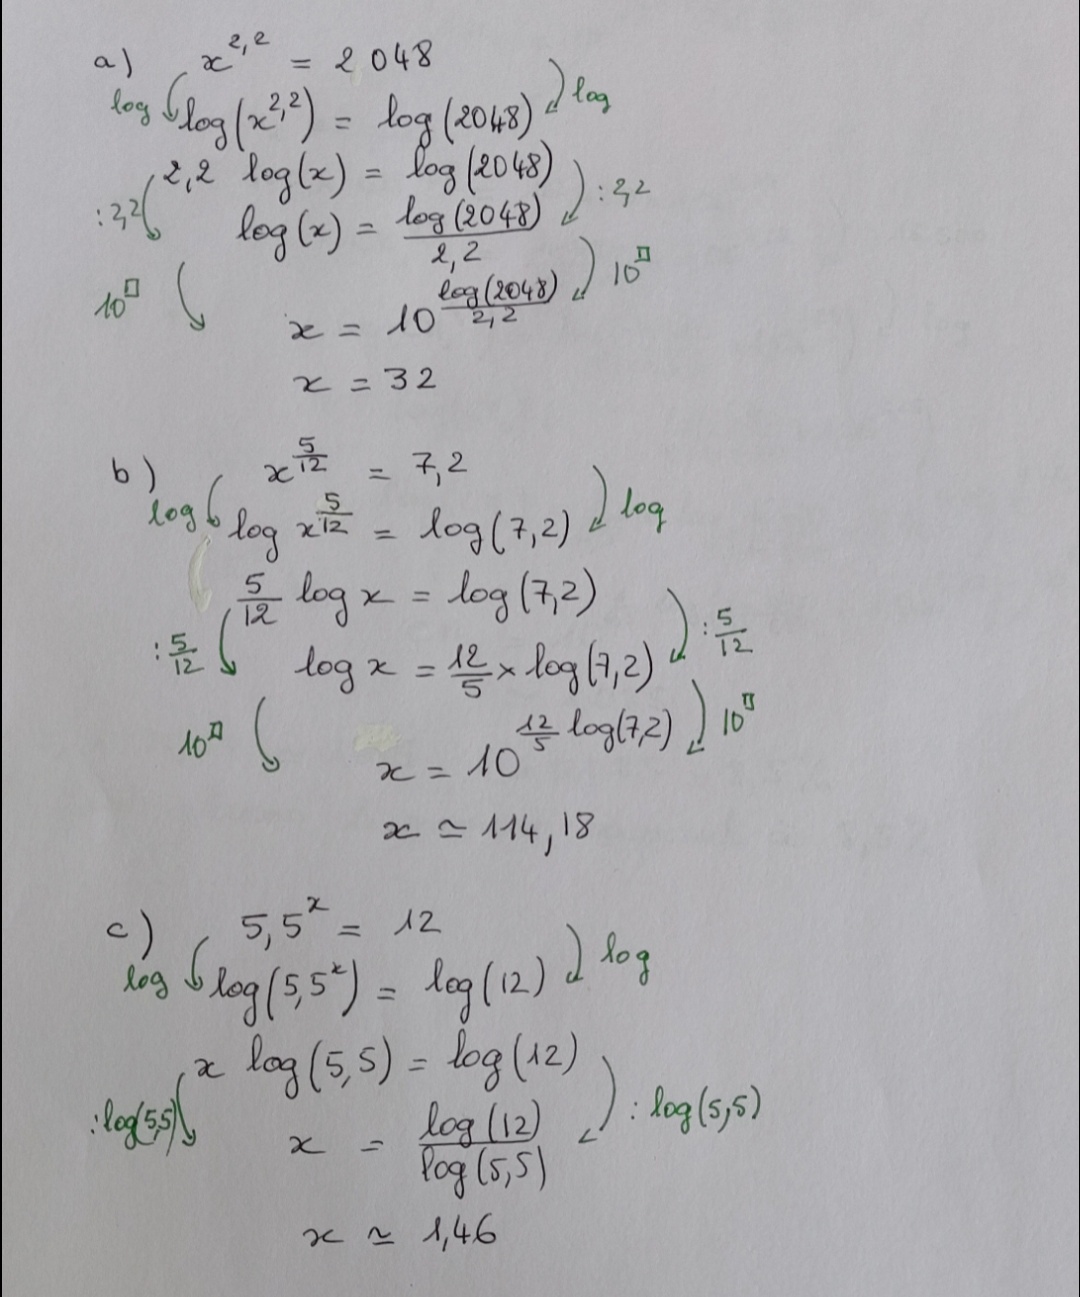 a) x^{2,2} = 2 048
log log(x^{2,2}) = log(2048) log
2,2 log(x) = log(2048)
:2,2 log(x) = \frac{log(2048)}{2,2} :2,2
10^□ x = 10^{\frac{log(2048)}{2,2}} 10^□
x = 32
b) x^{\frac{5}{12}} = 7,2
log log x^{\frac{5}{12}} = log(7,2) log
\frac{5}{12} log x = log(7,2)
:\frac{5}{12} log x = \frac{12}{5} × log(7,2) :\frac{5}{12}
10^□ x = 10^{\frac{12}{5} log(7,2)} 10^□
x ≃ 114,18
c) 5,5^x = 12
log log(5,5^x) = log(12) log
x log(5,5) = log(12)
:log(5,5) x = \frac{log(12)}{log(5,5)} : log(5,5)
x ≃ 1,46